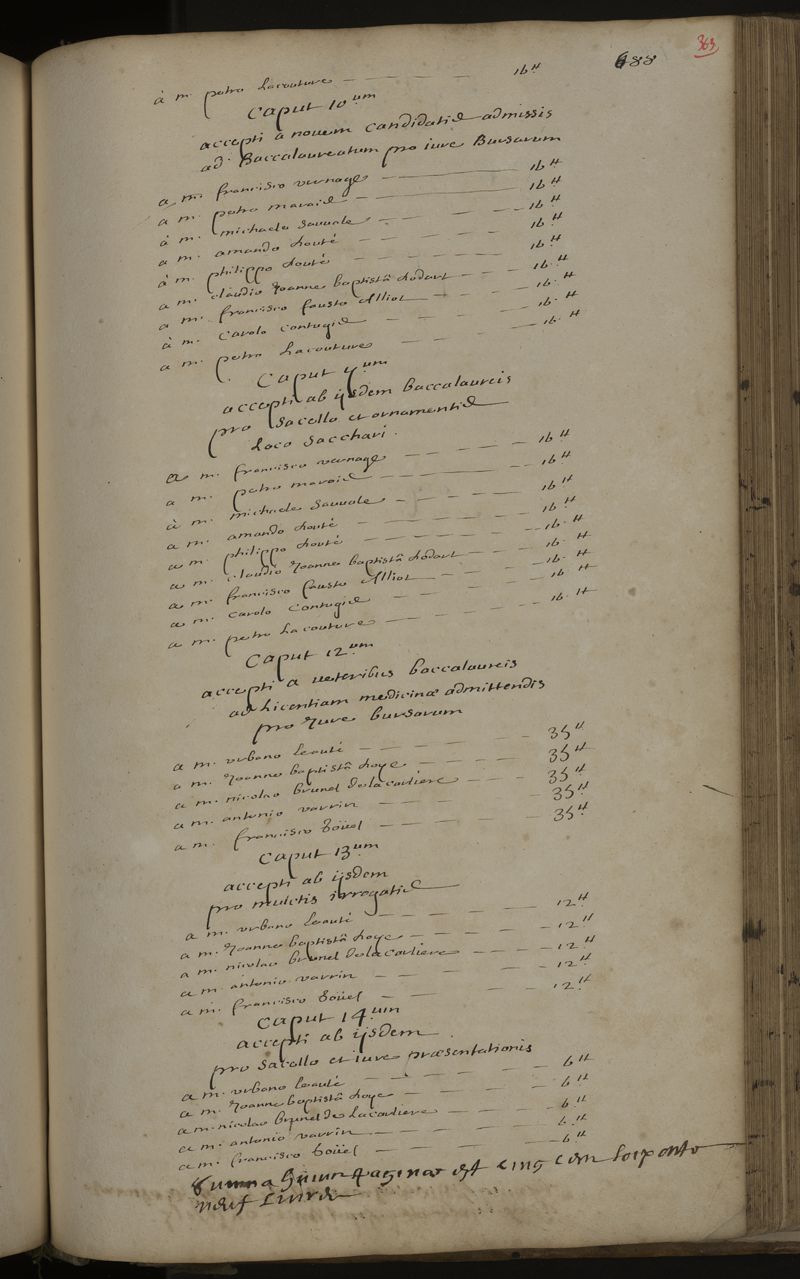 363
688
à m. petro Lacouture — — — — 16 ₶
Caput 10um
accepti à nouem candidatis admissis
ad Baccalaureatum pro iure Bursarum
a m. francisco vernage — 16 ₶
a m. petro marais — 16 ₶
à m. michaele Sauuale — 16 ₶
a m. amando douté — 16 ₶
à m. philippo douté — 16 ₶
a m. claudio Joanne baptistâ dodart — 16 ₶
a m. francisco fausto Alliot — 16 ₶
à m. Carolo Contugis — 16 ₶
a m. petro Lacouture — 16 ₶
Caput 11um
accepti ab ijsdem baccalaureis
pro Sacello et ornamentis
Loco Sacchari.
a m. francisco vernage — 16 ₶
a m. petro marais — 16 ₶
à m. michaele Sauuale — 16 ₶
a m. amando douté — 16 ₶
a m. philippo douté — 16 ₶
a m. claudio Joanne baptistâ dodart — 16 ₶
a m. francisco fausto Alliot — 16 ₶
a m. Carolo Contugis — 16 ₶
a m. petro Lacouture — 16 ₶
Caput 12um
accepti a ueteribus baccalaureis
ad Licentiam medicinæ admittendis
pro Jure bursarum
a m. urbano Leaulté — 35 ₶
a m. Joanne baptistâ doye — 35 ₶
a m. nicolao brunel de la carliere — 35 ₶
a m. antonio varrin — 35 ₶
a m. francisco boüel — 35 ₶
Caput 13um
accepti ab ijsdem
pro mulctis irrogatis
a m. urbano Leaulté — 12 ₶
a m. Joanne baptistâ doye — 12 ₶
a m. nicolao brunel de la carliere — 12 ₶
a m. antonio varrin — 12 ₶
a m. francisco boüel — 12 ₶
Caput 14um
accepti ab ijsdem
pro Sacello et iure præsentationis
a m. urbano Leaulté — 6 ₶
a m. Joanne baptistâ doye — 6 ₶
a m. nicolao brunel de Lacarliere — 6 ₶
a m. antonio varrin — 6 ₶
a m. francisco boüel — 6 ₶
Summa huius paginæ est cinq cem soixante
neuf Liures